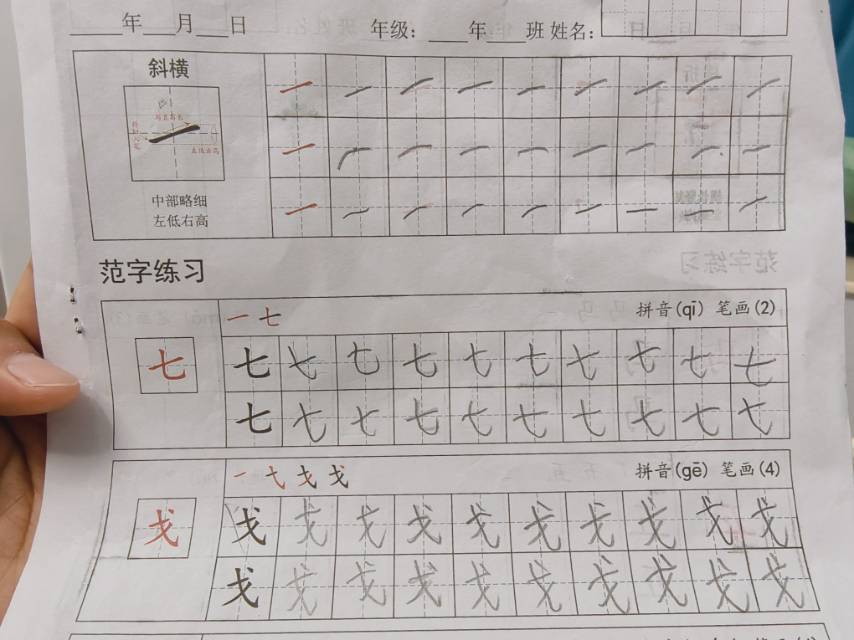 年 月 日 年级： 年 班 姓名：
斜横
中部略细
左低右高
范字练习
一 七 拼音(qī) 笔画(2)
七 七 七 七 七 七 七 七 七 七 七
七 七 七 七 七 七 七 七 七 七
一 弋 戈 戈 拼音(gē) 笔画(4)
戈 戈 戈 戈 戈 戈 戈 戈 戈 戈 戈
戈 戈 戈 戈 戈 戈 戈 戈 戈 戈